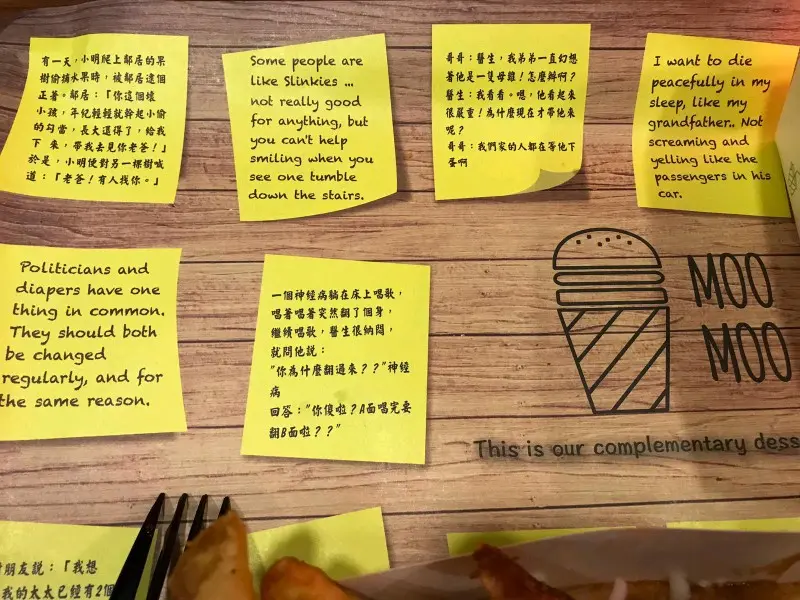 有一天，小明爬上鄰居的果
樹偷摘水果時，被鄰居逮個
正著。鄰居：「你這個壞
小孩，年紀輕輕就幹起小偷
的勾當，長大還得了，給我
下來，帶我去見你老爸！」
於是，小明便對另一棵樹喊
道：「老爸！有人找你。」
Some people are
like Slinkies ...
not really good
for anything, but
you can't help
smiling when you
see one tumble
down the stairs.
哥哥：醫生，我弟弟一直幻想
著他是一隻母雞！怎麼辦啊？
醫生：我看看。嗯，他看起來
很嚴重！為什麼現在才帶他來
呢？
哥哥：我們家的人都在等他下
蛋啊
I want to die
peacefully in my
sleep, like my
grandfather.. Not
screaming and
yelling like the
passengers in his
car.
Politicians and
diapers have one
thing in common.
They should both
be changed
regularly, and for
the same reason.
一個神經病躺在床上唱歌，
唱著唱著突然翻了個身，
繼續唱歌，醫生很納悶，
就問他說：
"你為什麼翻過來？？"神經
病
回答："你傻啦？A面唱完要
翻B面啦？？"
MOO
MOO
This is our complementary dess
朋友說：「我想
我的太太已經有2個